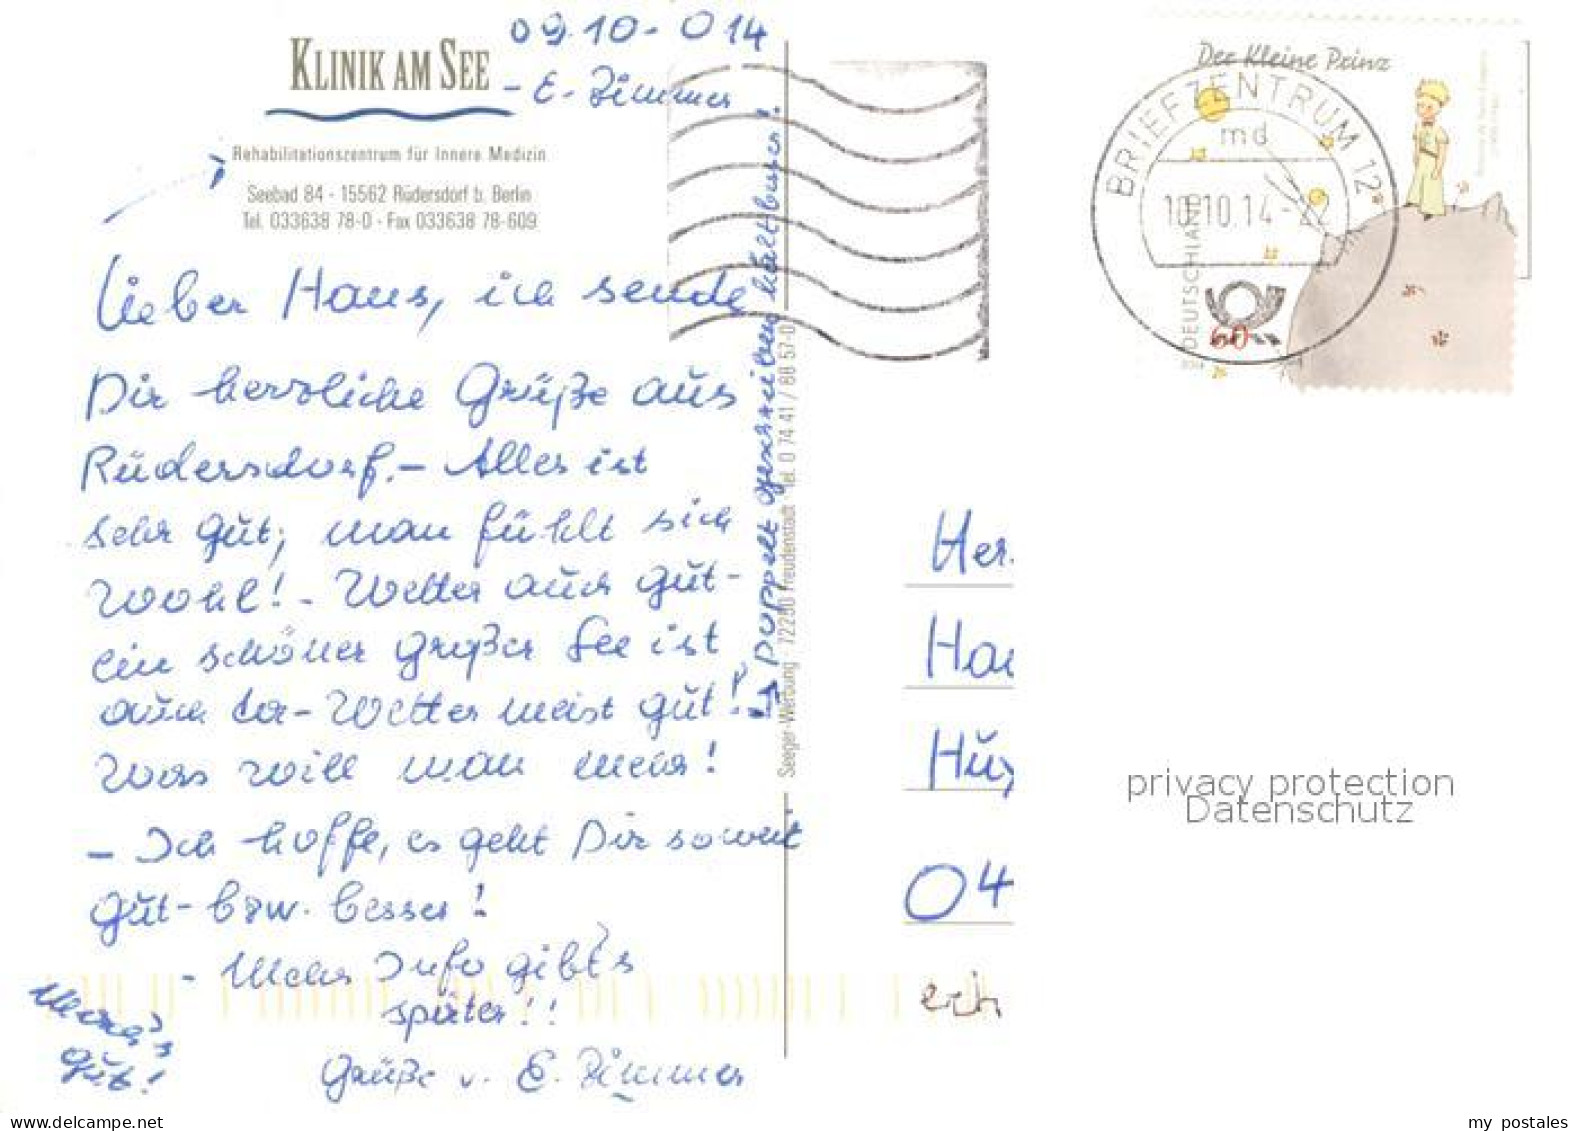 09.10.014
KLINIK AM SEE
- E. Zimmer
Rehabilitationszentrum für Innere Medizin
Seebad 84 - 15562 Rüdersdorf b. Berlin
Tel. 033638 78-0 - Fax 033638 78-609
Lieber Hans, ich sende
Dir herzliche Grüße aus
Rüdersdorf. - Alles ist
sehr gut; man fühlt sich
wohl! - Wetter auch gut -
ein schöner großer See ist
auch da - Wetter meist gut!
Was will man mehr!
- Ich hoffe, es geht Dir soweit
gut - bzw. besser!
- Mehr Info gibt's
später!!
Mach's
gut!
Grüße v. E. Zimmer
doppelt geschrieben hält besser!
Seeger-Werbung · 72250 Freudenstadt · Tel. 0 74 41 / 88 57-0
Der Kleine Prinz
BRIEFZENTRUM 12
md
10.10.14-22
DEUTSCHLAND
60
Her
Han
04
privacy protection
Datenschutz
my postales